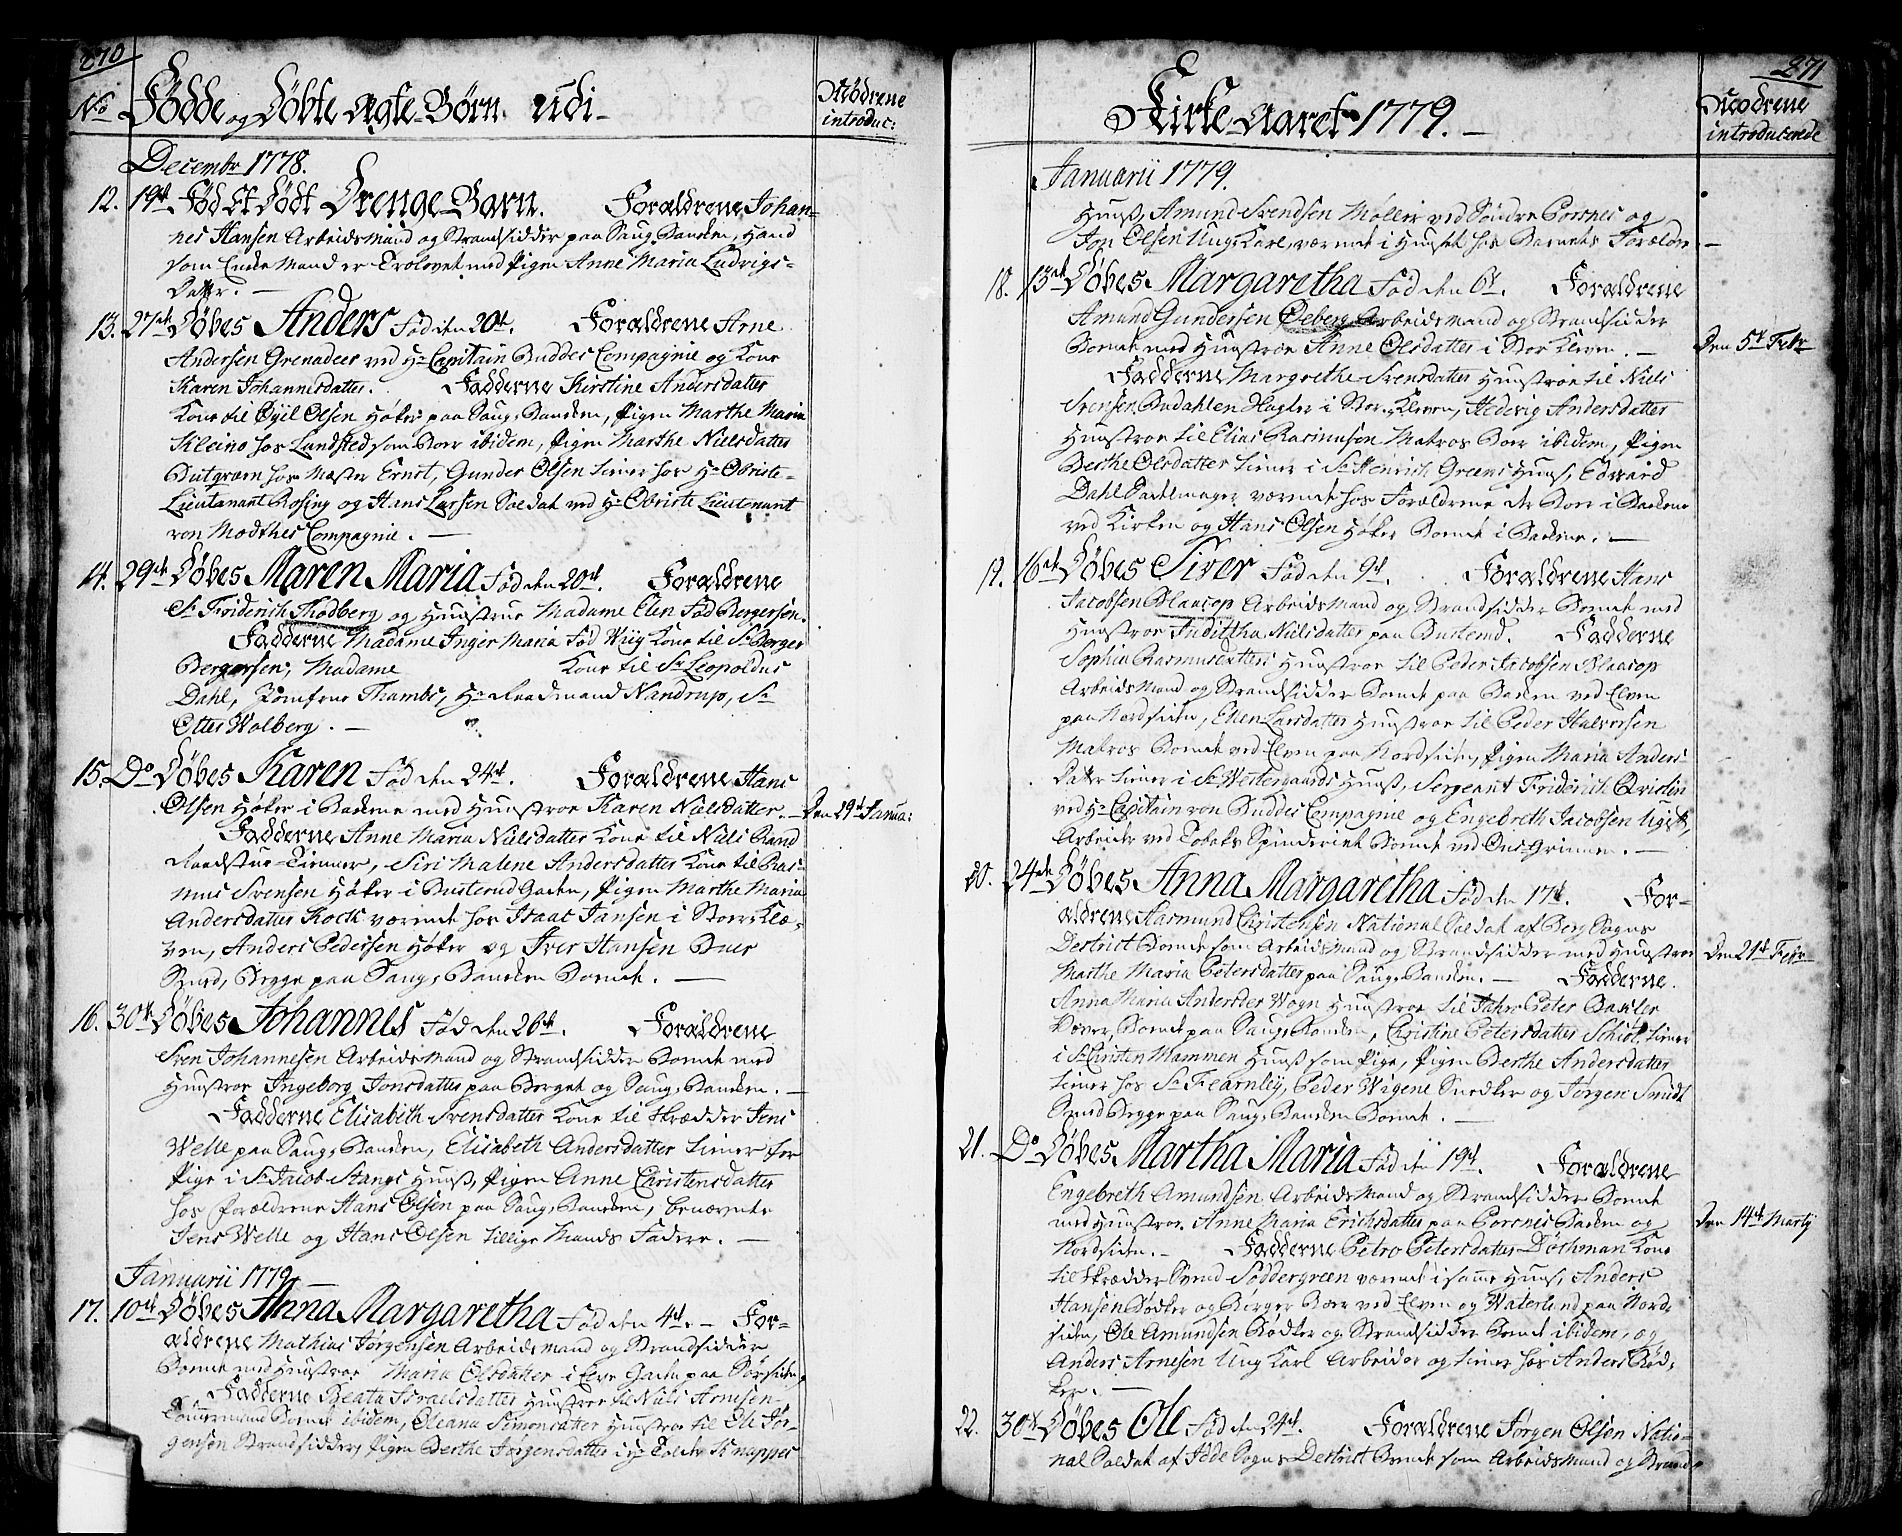 270
No Fødde og Døbte Ægte-Børn. udi-
Mødrene
introduc:
Decembr 1778.
12. 19de Fød Et Dødt Drenge-Barn. Forældrene Johan-
nes Hansen Arbeidsmand og Strandsidder paa Saug-Banken, Hand
som Enke Mand er Trolovet med Pigen Anne Maria Ludvigs-
Datter. —
13. 27de Døbes Anders Fød den 20de. Forældrene Arne
Andersen Grenadeer ved Hr Capitain Buddes Compagnie og Kone
Karen Johannesdatter. Fadderne Kirstine Andersdatter
Kone til Eyel Olsen Høker paa Saug-Banken, Pigen Marthe Maria
hos Landsted som boer ibidem, Pigen Marthe Nielsdatter
hos Mester Ernst, Gunder Olsen tiener hos Hr Obriste-
Lieutenant Rosing og Hans Larsen Soldat ved Hr Obriste Lieutenant
von Mødthes Compagnie. —
14. 29de Døbes Maren Maria Fød den 20de. Forældrene
Sr Friderich Thodberg og Hustrue Madame Elen Fød Bergersen.
Fadderne Madame Inger Maria Fød Wiig Kone til Sr Berger
Bergersen, Madame Kone til Sr Leopoldus
Dahl, Jomfrue Thambs, Hr Raadmand Nandrup, Sr
Otter Walberg. —
15. Do Døbes Karen Fød den 24de. Forældrene Hans
Olsen Høker i Bakkene med Hustroe Karen Nielsdatter. — Den 29de Janua:
Fadderne Anne Maria Nielsdatter Kone til Niels Rand
Raadstue-Tienner, Siri Malene Andersdatter Kone til Ras-
mus Svensen Høker i Busterud Gaden, Pigen Marthe Maria
Andersdatter Kock værende hos Isaac Jansen i Stor-Klæ-
ven, Anders Pedersen Høker og Iver Hansen Buer
Smed, Begge paa Saug-Banken Boende. —
16. 30te Døbes Johannes Fød den 26de. Forældrene
Sven Johannesen Arbeidsmand og Strandsidder Boende med
Hustroe Ingeborg Jonsdatter paa Berget og Saug-Banken. —
Fadderne Elisabeth Svensdatter Kone til Skrædder Jens
Welle paa Saug-Banken, Elisabeth Andersdatter tiener for
Pige i Sr Jacob Stangs Huus, Pigen Anne Christensdatter
hos Forældrene Hans Olsen paa Saug-Banken, benævnte
Jens Welle og Hans Olsen tillige Mands Faddere. —
Januarii 1779. —
17. 10de Døbes Anna Margaretha Fød den 4de. — For-
ældrene Mathias Jørgensen Arbeidsmand og Strandsidder
Boende med Hustroe Maria Olsdatter i Elve Gaden paa Sørsiden
Fadderne Beata Israelsdatter Hustroe til Niels Arnesen
Tømmermand Boende ibidem, Oleana Simonsdatter Hustroe til Ole Jør-
gensen Strandsidder, Pigen Berthe Jørgensdatter Knapper
271
Kirke-Aaret 1779. —
Mødrene
introducerede
Januarii 1779.
Huus, Amund Svendsen Møller ved Søndre Porsnes og
Jon Olsen Ung Karl, værende i Huuset hos Barnets Forældre. —
18. 13de Døbes Margaretha Fød den 6te. Forældrene
Amund Gundersen Øeberg Arbeidsmand og Strandsidder
Boende med Hustroe Anne Olsdatter i Stor Kleven. — Den 5te Febr
Fadderne Margrethe Svensdatter Hustroe til Niels
Svensen Budahlen Hagler i Stor-Kleven, Hedevig Andersdatter
Hustroe til Elias Rasmusen Matros Boer ibidem, Pigen
Berthe Olsdatter tiener i Sr Henrich Greens Huus, Edvard
Dahl Sadelmager værende hos Forældrene der Boer i Bakkene
ved Kirken og Hans Olsen Høker Boende i Bakkene. —
19. 16de Døbes Siver Fød den 9de. Forældrene Hans
Jacobsen Blaacop Arbeidsmand og Strandsidder Boende med
Hustroe Inditha Nielsdatter paa Busterud. Fadderne
Sophia Rasmusdatter Hustroe til Peder Jacobsen Blaacop
Arbeidsmand og Strandsidder Boende paa Banken ved Elven
paa Nordsiden, Ellen Larsdatter Hustroe til Peder Halversen
Matros Boende ved Elven paa Nordsiden, Pigen Maria Anders-
Datter tiener i Sr Westergaards Huus, Sergeant Friderich Qvistin
ved Hr Capitain von Buddes Compagnie og Engebreth Jacobsen
Arbeider ved Tobaks Spinderiet Boende ved Ous-Grinnen. —
20. 24de Døbes Anna Margaretha Fød den 17de. For-
ældrene Aasmund Christensen National Soldat af Berg Sogns
District Boende som Arbeidsmand og Strandsidder med Hustroe Den 21de Febr
Marthe Maria Petersdatter paa Saug-Banken. — Fadderne
Anna Maria Anders der Wogn Hustroe til Peter Baxter
Væver, Boende paa Saug-Banken, Christine Petersdatter Schiøt tiener
i Sr Christen Mammen Huus som Pige, Pigen Berthe Andersdatter
tiener hos Sr Fearnley, Peder Wigene Snedker og Jørgen Smidt
Smed Begge paa Saug-Banken Boende. —
21. Do Døbes Martha Maria Fød den 19de. Forældrene
Engebreth Amundsen Arbeidsmand og Strandsidder Boende
med Hustroe Anne Maria Erichsdatter paa Porsnes Banken og Den 14de Martj
Nordsiden. — Fadderne Petro Petersdatter Døthman Kone
til Skrædder Svend Søddergreen værende i samme Huus, Anders
Hansen Bødker og Borger Boer ved Elven og Waterland paa Nord-
siden, Ole Amundsen Bødker og Strandsidder Boende ibidem, og
Anders Arnesen Ung Karl Arbeider og tiener hos Anders Bød-
ker. —
22. 30te Døbes Ole Fød den 24de. Forældrene Jørgen Olsen Natio-
nal Soldat af Idde Sogns District Boende som Arbeidsmand og Strand-